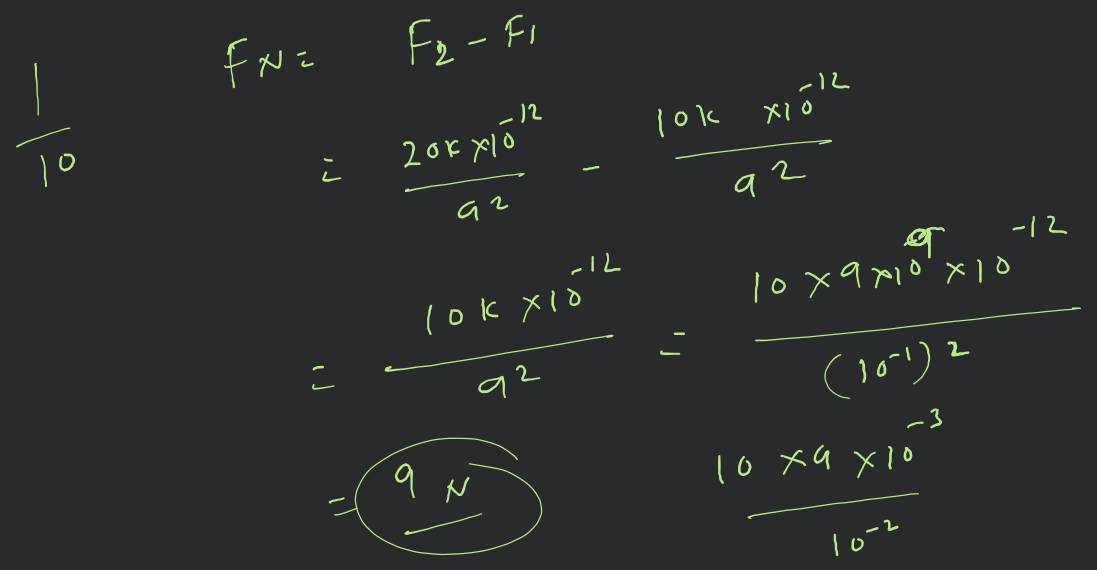 1/10
F_N = F_2 - F_1
= 20k×10^-12 / a^2 - 10k ×10^-12 / a^2
= 10k×10^-12 / a^2 = 10×9×10^9×10^-12 / (10^-1)^2
= 9 N
10×9×10^-3 / 10^-2